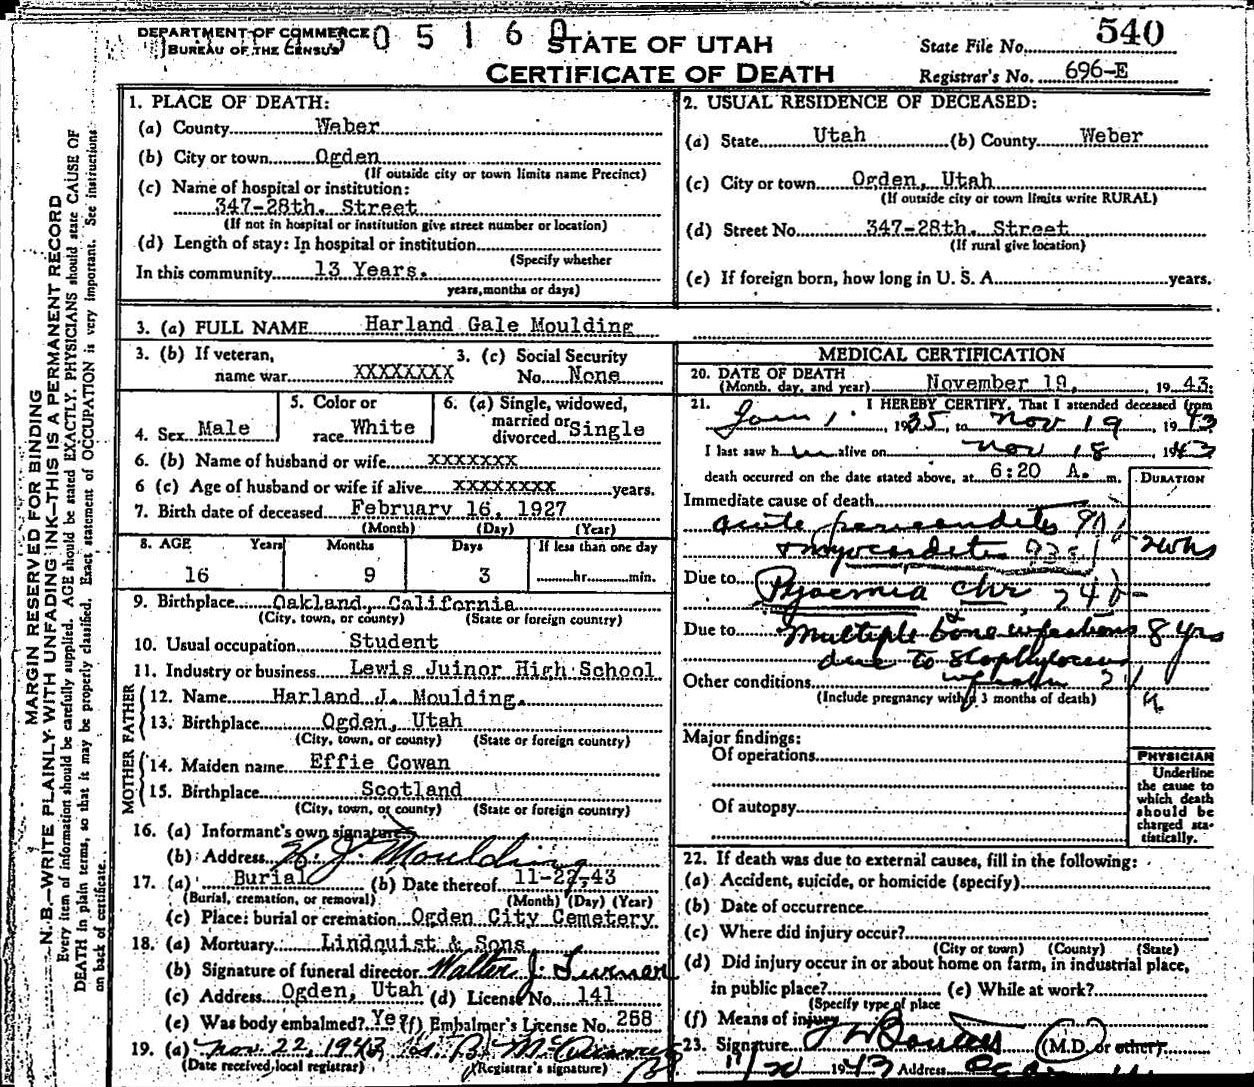 DEPARTMENT OF COMMERCE
BUREAU OF THE CENSUS
0 5 1 6 0
STATE OF UTAH
CERTIFICATE OF DEATH
State File No. 540
Registrar's No. 696-E
MARGIN RESERVED FOR BINDING
N. B.—WRITE PLAINLY WITH UNFADING INK—THIS IS A PERMANENT RECORD
Every item of information should be carefully supplied. AGE should be stated EXACTLY. PHYSICIANS should state CAUSE OF
DEATH in plain terms, so that it may be properly classified. Exact statement of OCCUPATION is very important. See instructions
on back of certificate.
1. PLACE OF DEATH:
(a) County Weber
(b) City or town Ogden
(If outside city or town limits name Precinct)
(c) Name of hospital or institution:
347-28th. Street
(If not in hospital or institution give street number or location)
(d) Length of stay: In hospital or institution
(Specify whether
In this community 13 Years.
years, months or days)
2. USUAL RESIDENCE OF DECEASED:
(a) State Utah (b) County Weber
(c) City or town Ogden, Utah
(If outside city or town limits write RURAL)
(d) Street No. 347-28th. Street
(If rural give location)
(e) If foreign born, how long in U. S. A. years.
3. (a) FULL NAME Harland Gale Moulding
3. (b) If veteran, name war XXXXXXXX
3. (c) Social Security No. None
4. Sex Male
5. Color or race White
6. (a) Single, widowed, married or divorced Single
6. (b) Name of husband or wife XXXXXXX
6 (c) Age of husband or wife if alive XXXXXXXX years.
7. Birth date of deceased February 16, 1927
(Month) (Day) (Year)
8. AGE Years Months Days If less than one day
16 9 3 hr. min.
9. Birthplace Oakland, California
(City, town, or county) (State or foreign country)
10. Usual occupation Student
11. Industry or business Lewis Juinor High School
FATHER
12. Name Harland J. Moulding.
13. Birthplace Ogden, Utah
(City, town, or county) (State or foreign country)
MOTHER
14. Maiden name Effie Cowan
15. Birthplace Scotland
(City, town, or county) (State or foreign country)
16. (a) Informant's own signature
(b) Address H. J. Moulding
17. (a) Burial (b) Date thereof 11-22-43
(Burial, cremation, or removal) (Month) (Day) (Year)
(c) Place: burial or cremation Ogden City Cemetery
18. (a) Mortuary Lindquist & Sons
(b) Signature of funeral director Walter J. Turner
(c) Address Ogden, Utah (d) License No. 141
(e) Was body embalmed? Yes (f) Embalmer's License No. 258
19. (a) Nov 22, 1943
(Date received local registrar) (Registrar's signature)
MEDICAL CERTIFICATION
20. DATE OF DEATH
(Month, day, and year) November 19, 1943.
21. I HEREBY CERTIFY, That I attended deceased from
Jan 1. 1935, to Nov 19 1943
I last saw him alive on Nov 18, 1943
death occurred on the date stated above, at 6:20 A. m.
DURATION
Immediate cause of death
acute pericarditis
& myocarditis
Due to Pyaemia chr
Due to Multiple bone infections 8 yrs
due to Staphylococcus
Other conditions
(Include pregnancy within 3 months of death)
Major findings:
Of operations
Of autopsy
PHYSICIAN
Underline
the cause to
which death
should be
charged sta-
tistically.
22. If death was due to external causes, fill in the following:
(a) Accident, suicide, or homicide (specify)
(b) Date of occurrence
(c) Where did injury occur?
(City or town) (County) (State)
(d) Did injury occur in or about home on farm, in industrial place,
in public place? (e) While at work?
(Specify type of place
(f) Means of injury
23. Signature (M.D. or other)
1943 Address